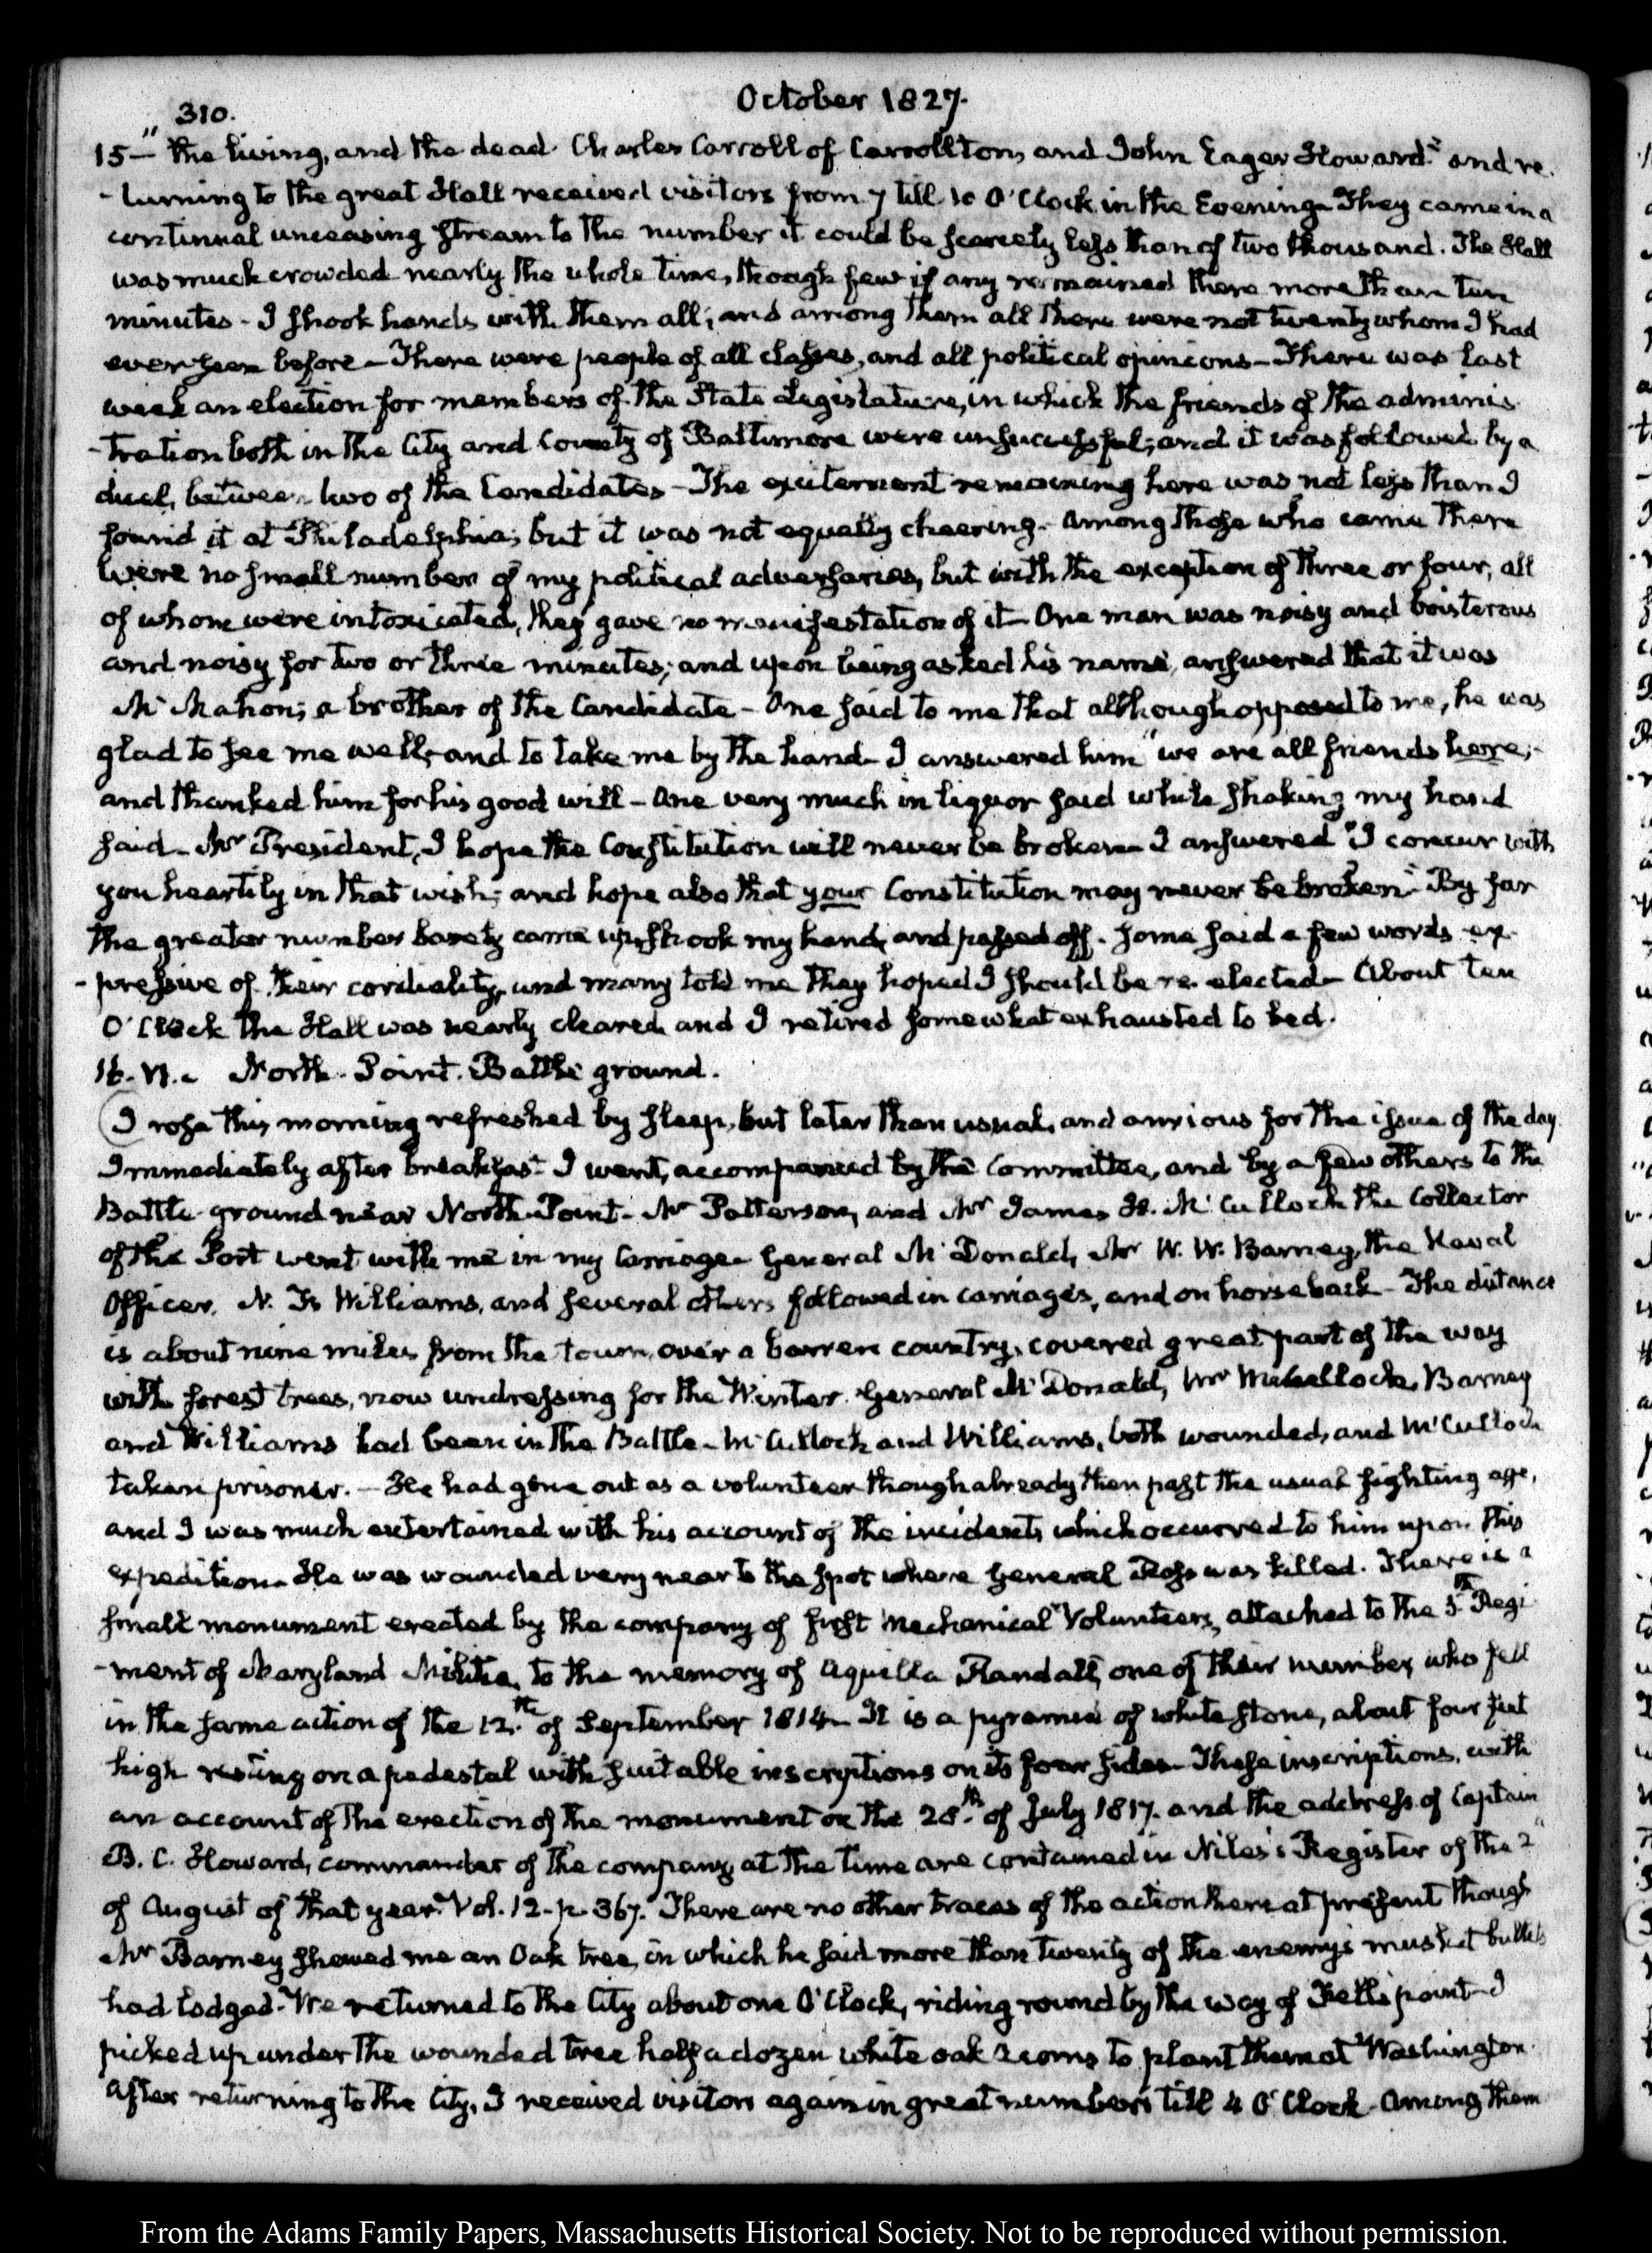 310.
October 1827.
15— "the living, and the dead. Charles Carroll of Carrollton, and John Eager Howard" and re-
-turning to the great Hall received visitors from 7 till 10 O'Clock in the Evening. They came in a
continual unceasing stream to the number it could be scarcely less than of two thousand. The Hall
was much crowded nearly the whole time, though few if any remained there more than ten
minutes - I shook hands with them all; and among them all there were not twenty whom I had
ever seen before - There were people of all classes, and all political opinions - There was last
week an election for members of the State Legislature, in which the friends of the adminis-
-tration both in the City and County of Baltimore were unsuccessful; and it was followed by a
duel, between two of the Candidates - The excitement remaining here was not less than I
found it at Philadelphia; but it was not equally cheering. Among those who came there
were no small number of my political adversaries, but with the exception of three or four, all
of whom were intoxicated, they gave no manifestation of it - One man was noisy and boisterous
and noisy for two or three minutes; and upon being asked his name, answered that it was
McMahon; a brother of the Candidate - One said to me that although opposed to me, he was
glad to see me well, and to take me by the hand - I answered him "we are all friends here;-
and thanked him for his good will - One very much in liquor said while shaking my hand
said - Mr President, I hope the Constitution will never be broken - I answered "I concur with
you heartily in that wish; and hope also that your Constitution may never be broken" By far
the greater number barely came up, shook my hand, and passed off. Some said a few words ex-
-pressive of their cordiality, and many told me they hoped I should be re-elected - About ten
O'Clock the Hall was nearly cleared and I retired somewhat exhausted to bed.
16. VI. - North-Point. Battle ground.
I rose this morning refreshed by sleep, but later than usual, and anxious for the issue of the day.
Immediately after breakfast I went, accompanied by the Committee, and by a few others to the
Battle-ground near North-Point - Mr Patterson, and Mr James H. McCulloch the Collector
of the Port went with me in my Carriage - General McDonald, Mr W. W. Barney, the Naval
Officer, N. F. Williams, and several others followed in carriages, and on horseback - The distance
is about nine miles from the town, over a barren country, covered great part of the way
with forest trees, now undressing for the Winter. General McDonald, Mr McCulloch, Barney
and Williams had been in the Battle - McCulloch and Williams, both wounded, and McCulloch
taken prisoner. - He had gone out as a volunteer though already then past the usual fighting age,
and I was much entertained with his account of the incidents which occurred to him upon this
expedition - He was wounded very near to the spot where General Ross was killed. There is a
small monument erected by the company of first Mechanical Volunteers, attached to the 5th Regi-
-ment of Maryland Militia, to the memory of Aquilla Randall, one of their number, who fell
in the same action of the 12th of September 1814 - It is a pyramid of white stone, about four feet
high resting on a pedestal with suitable inscriptions on its four sides - These inscriptions, with
an account of the erection of the monument on the 28th of July 1817. and the address of Captain
B. C. Howard, commander of the company at the time are contained in Niles's Register of the 2d
of August of that year. Vol. 12 - p. 367. There are no other traces of the action there at present though
Mr Barney showed me an Oak tree, in which he said more than twenty of the enemy's musket bullets
had lodged - We returned to the City about one O'Clock, riding round by the way of Fell's point - I
picked up under the wounded tree half a dozen white oak acorns to plant them at Washington.
After returning to the City, I received visitors again in great numbers till 4 O'Clock - Among them
From the Adams Family Papers, Massachusetts Historical Society. Not to be reproduced without permission.